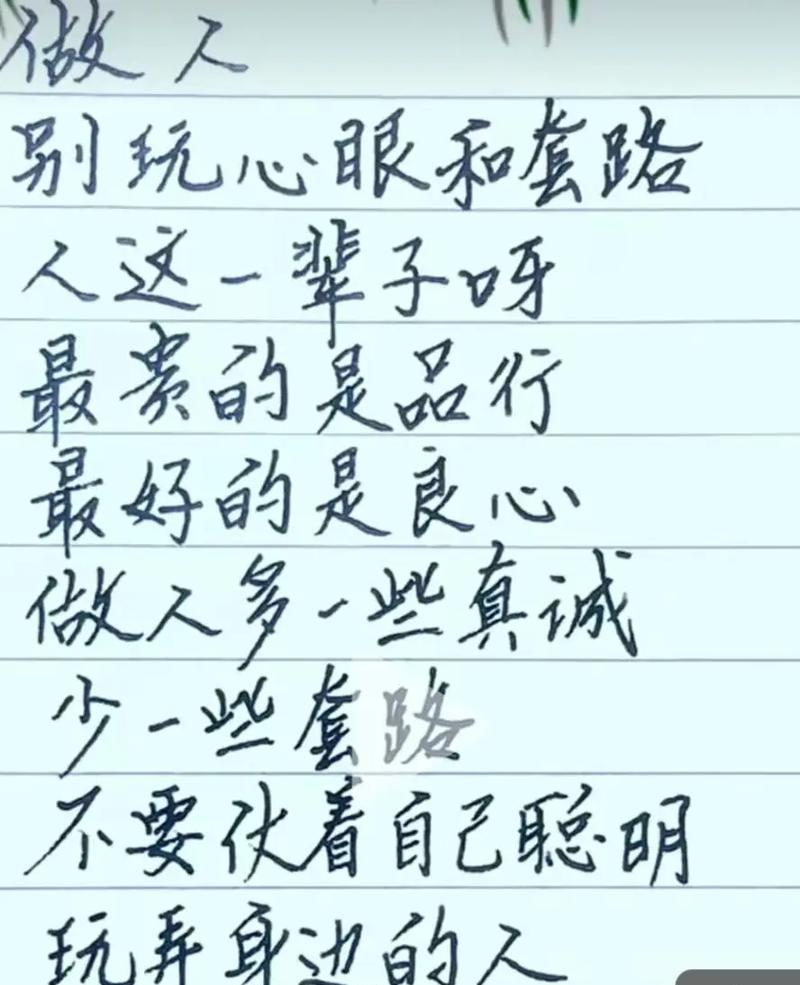 做人
别玩心眼和套路
人这一辈子呀
最贵的是品行
最好的是良心
做人多一些真诚
少一些套路
不要伏着自己聪明
玩弄身边的人